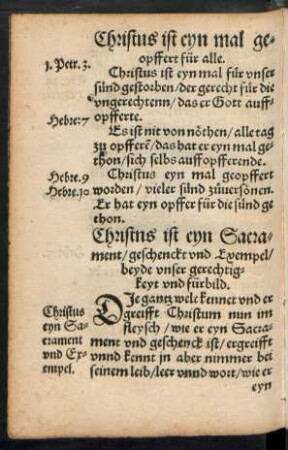 Christus ist eyn mal ge-
opffert für alle.
1. Petr. 3.
Christus ist eyn mal für vnser
sünd gestorben / der gerecht für die
vngerechtenn / das er Gott auff-
opfferte.
Hebre: 7
Es ist nit von nöthen / alle tag
zů opfferẽ / das hat er eyn mal ge-
thon / sich selbs auffopfferende.
Hebre. 9
Hebre. 10
Christus eyn mal geopffert
worden / vieler sünd zůuersönen.
Er hat eyn opffer für die sünd ge
thon.
Christus ist eyn Sacra-
ment / geschenckt vnd Exempel /
beyde vnser gerechtig-
keyt vnd fürbild.
Christus
eyn Sa-
crament
vnd Ex-
empel.
DJe gantz welt kennet vnd er
greifft Christum nun im
fleysch / wie er eyn Sacra-
ment vnd geschenck ist / ergreifft
vnnd kennt jn aber nimmer bei
seinem leib / leer vnnd wort / wie er
eyn